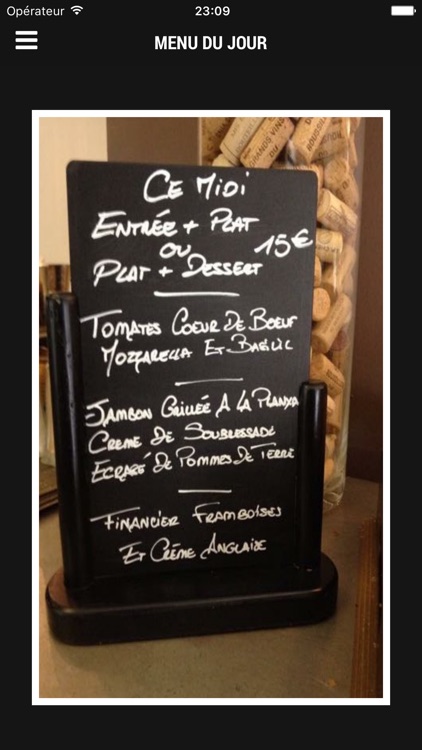 Opérateur 23:09
MENU DU JOUR
CE MIDI
ENTRÉE + PLAT
OU 15€
PLAT + DESSERT
TOMATES COEUR DE BOEUF
MOZZARELLA ET BASILIC
JAMBON GRILLÉE A LA PLANXA
CREME DE SOUBRESSADE
ECRASÉ DE POMMES DE TERRE
FINANCIER FRAMBOISES
ET CRÈME ANGLAISE
GRANDS VINS